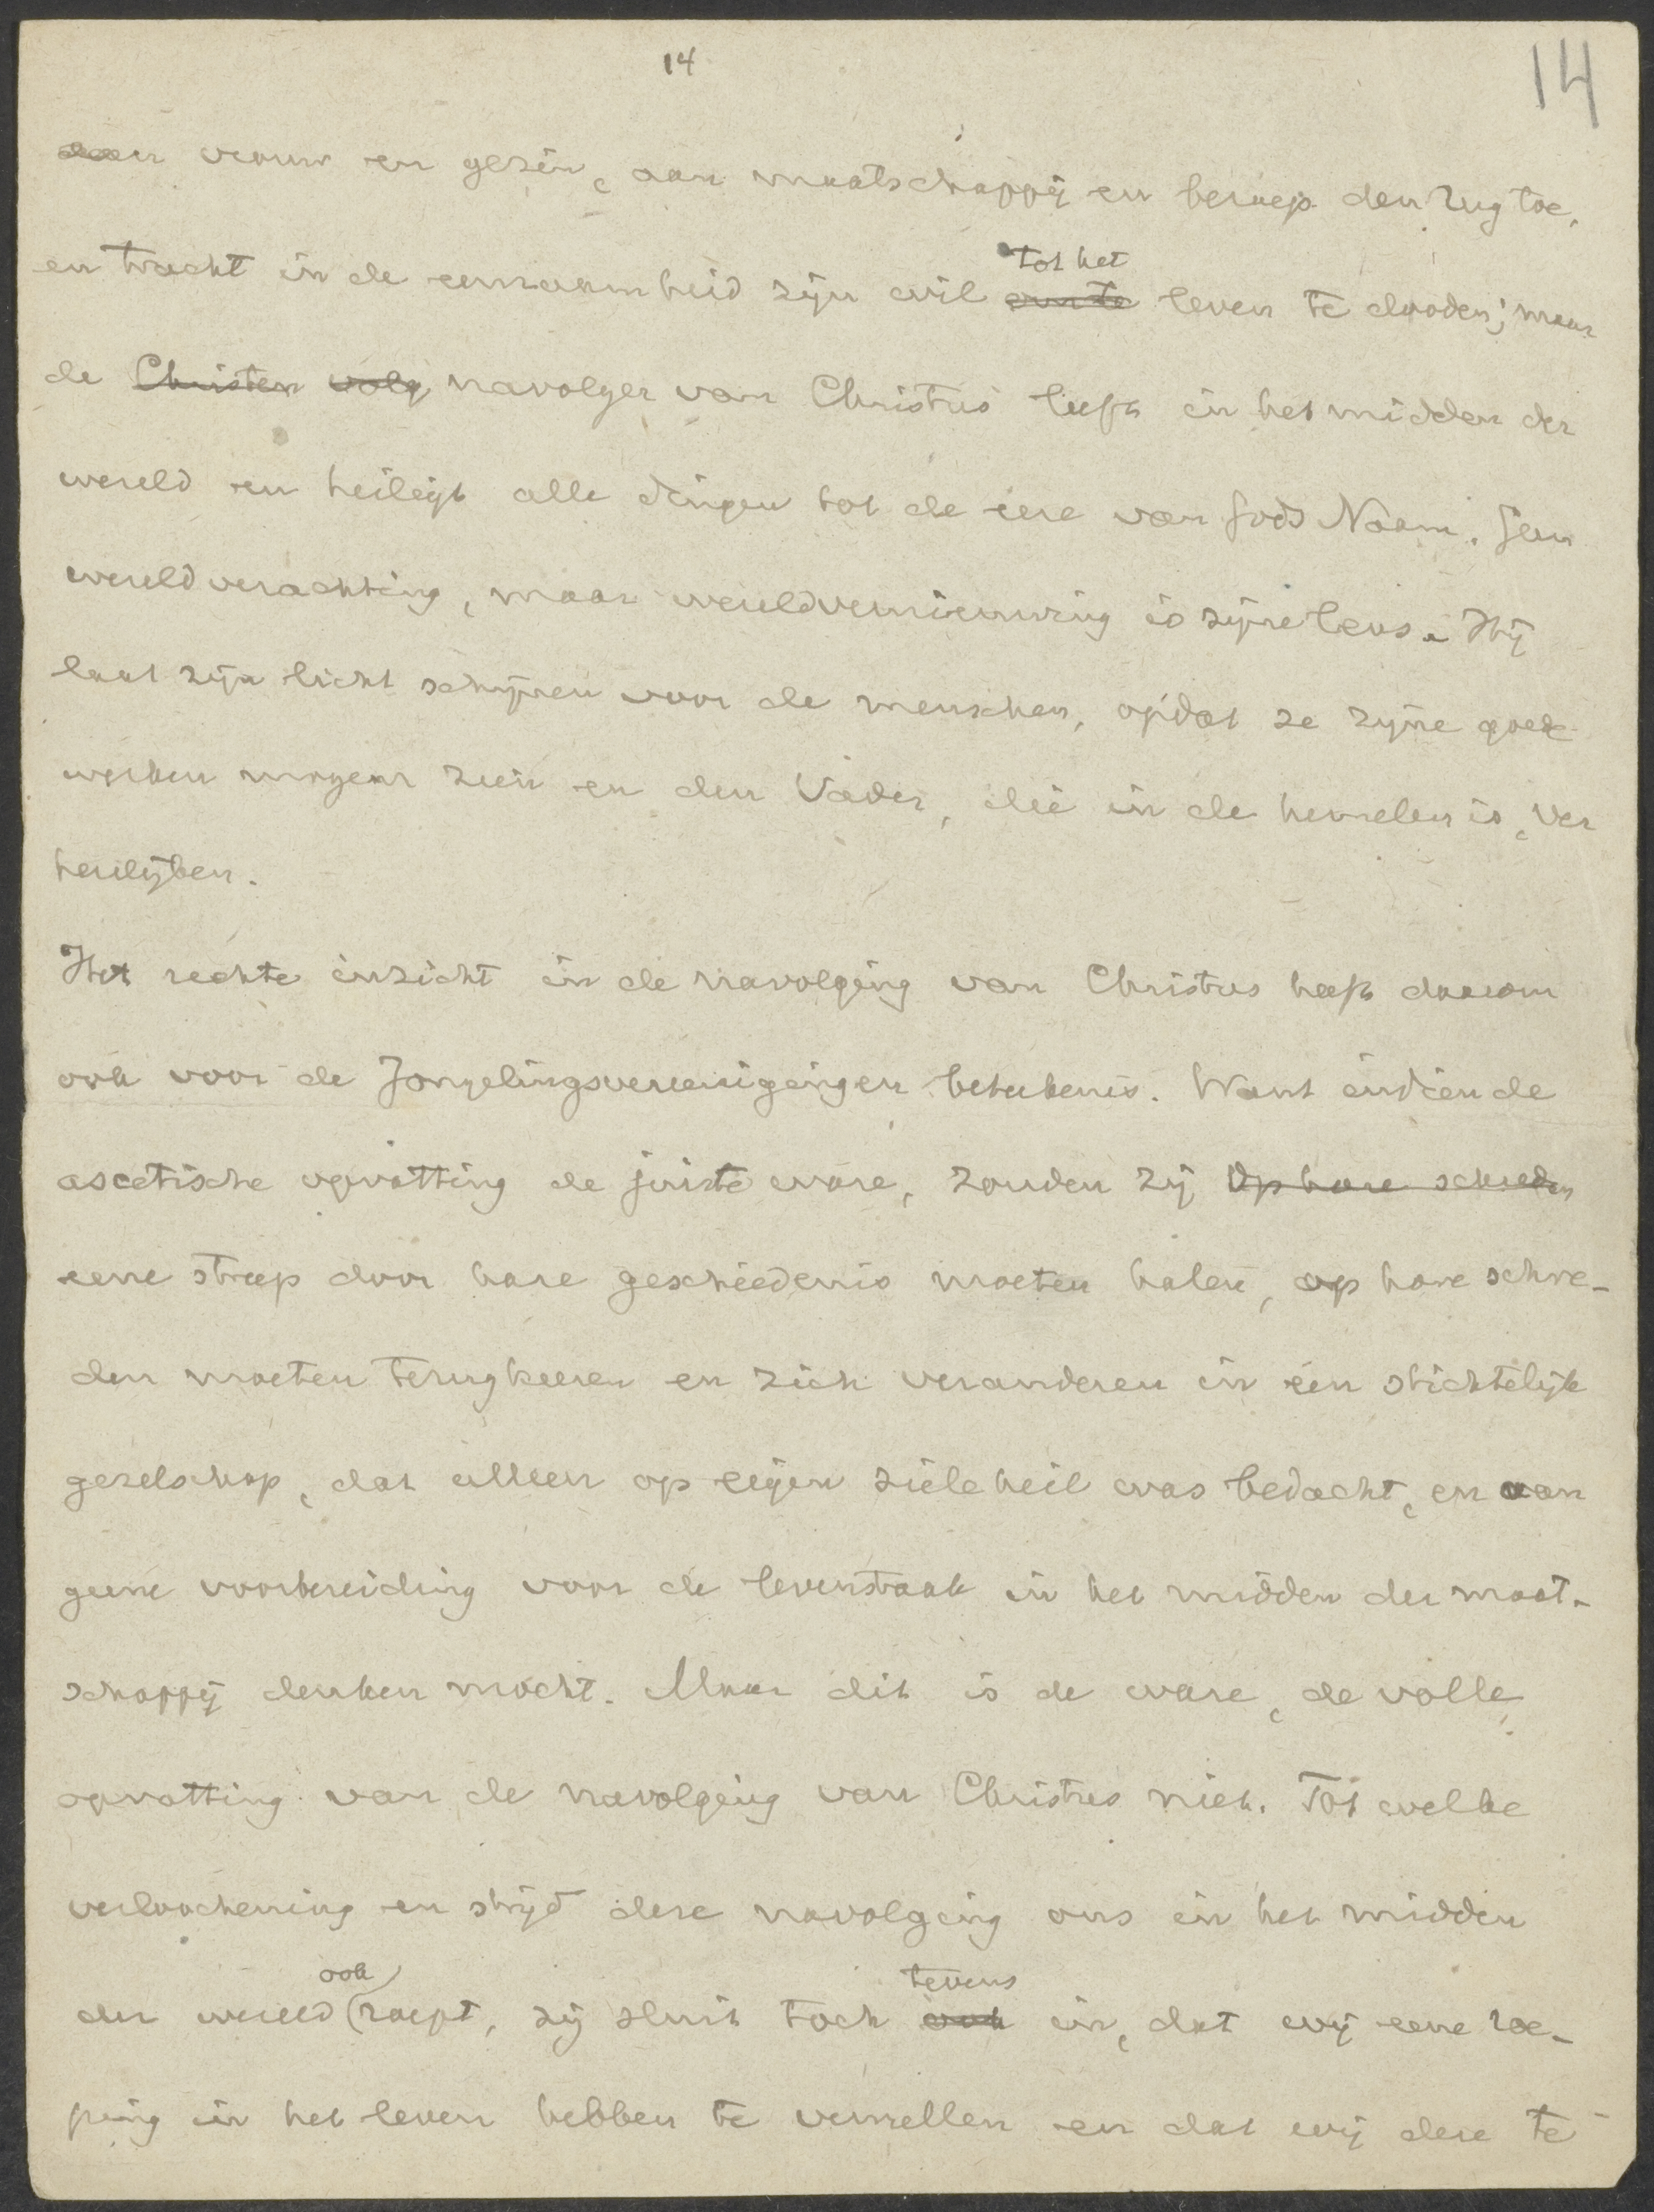 14
14
aan vrouw en gezin, aan maatschappij en beroep den rug toe,
en tracht in de eenzaamheid zijn wil tot het leven te dooden; maar
de Christen volg navolger van Christus leeft in het midden der
wereld en heiligt alle dingen tot de eere van Gods Naam. Geen
wereldverachting, maar wereldvernieuwing is zijne leus. Hij
laat zijn licht schijnen voor de menschen, opdat ze zijne goede
werken mogen zien en den Vader, die in de hemelen is, ver
heerlijken.
Het rechte inzicht in de navolging van Christus heeft daarom
ook voor de Jongelingsvereenigingen beteekenis. Want indien de
ascetische opvatting de juiste ware, zouden zij op hare schreden
eene streep door hare geschiedenis moeten halen, op hare schre-
den moeten terugkeeren en zich veranderen in een stichtelijk
gezelschap, dat alleen op eigen zieleheil was bedacht, en aan
geene voorbereiding voor de levenstaak in het midden der maat-
schappij denken mocht. Maar dit is de ware, de volle
opvatting van de navolging van Christus niet. Tot welke
verloochening en strijd deze navolging ons in het midden
der wereld ook roept, zij sluit toch ook tevens in, dat wij eene roe-
ping in het leven hebben te vervullen en dat wij deze te